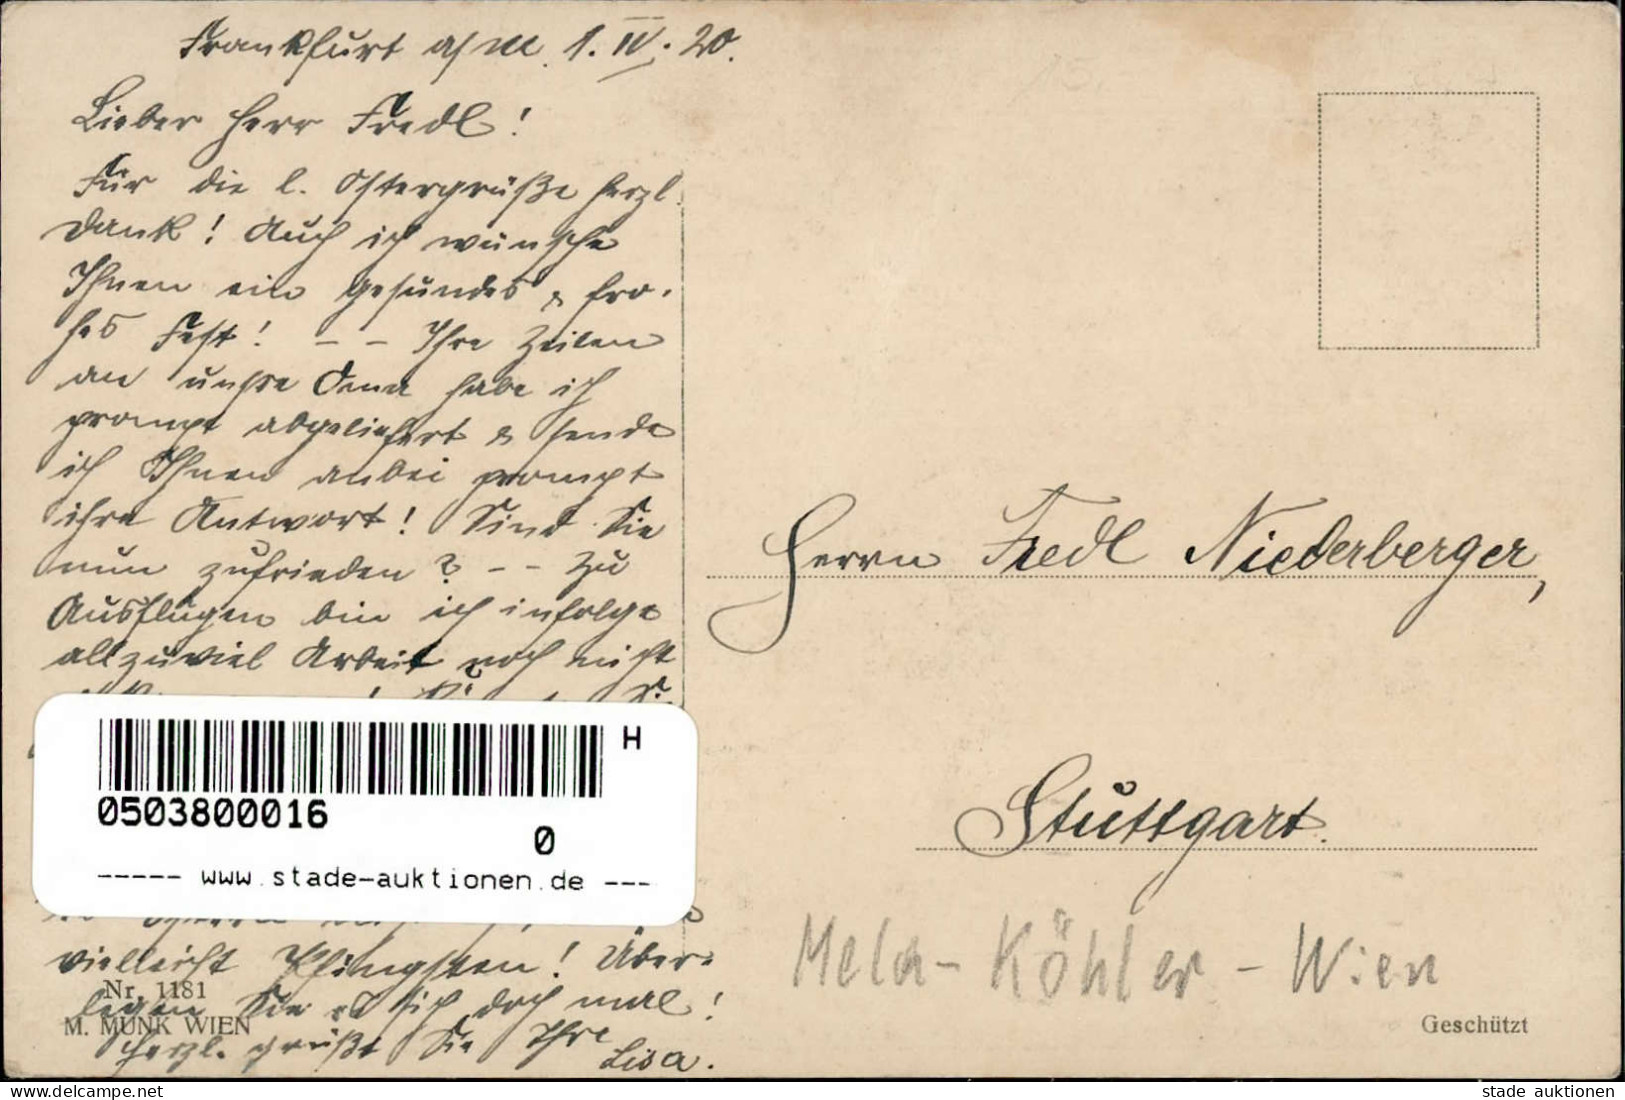 Frankfurt a/M. 1. IV. 20.
Lieber Herr Fredl!
Für die l. Ostergrüße herzl.
Dank! Auch ich wünsche
Ihnen ein gesundes & fro-
hes Fest! – – Ihre Zeilen
an unsre habe ich
prompt abgeliefert & sende
ich Ihnen anbei prompt
ihre Antwort! Sind Sie
nun zufrieden? – – Zu
Ausflügen bin ich infolge
allzuviel Arbeit noch nicht
vielleicht Pfingsten! Über-
legen Sie sich doch mal!
Herzl. grüßt Sie Ihre
Lisa.
Nr. 1181
M. MUNK WIEN
H
0503800016
0
----- www.stade-auktionen.de ---
Herrn Fredl Niederberger,
Stuttgart.
Mela-Köhler - Wien
Geschützt
www.delcampe.net
stade auktionen